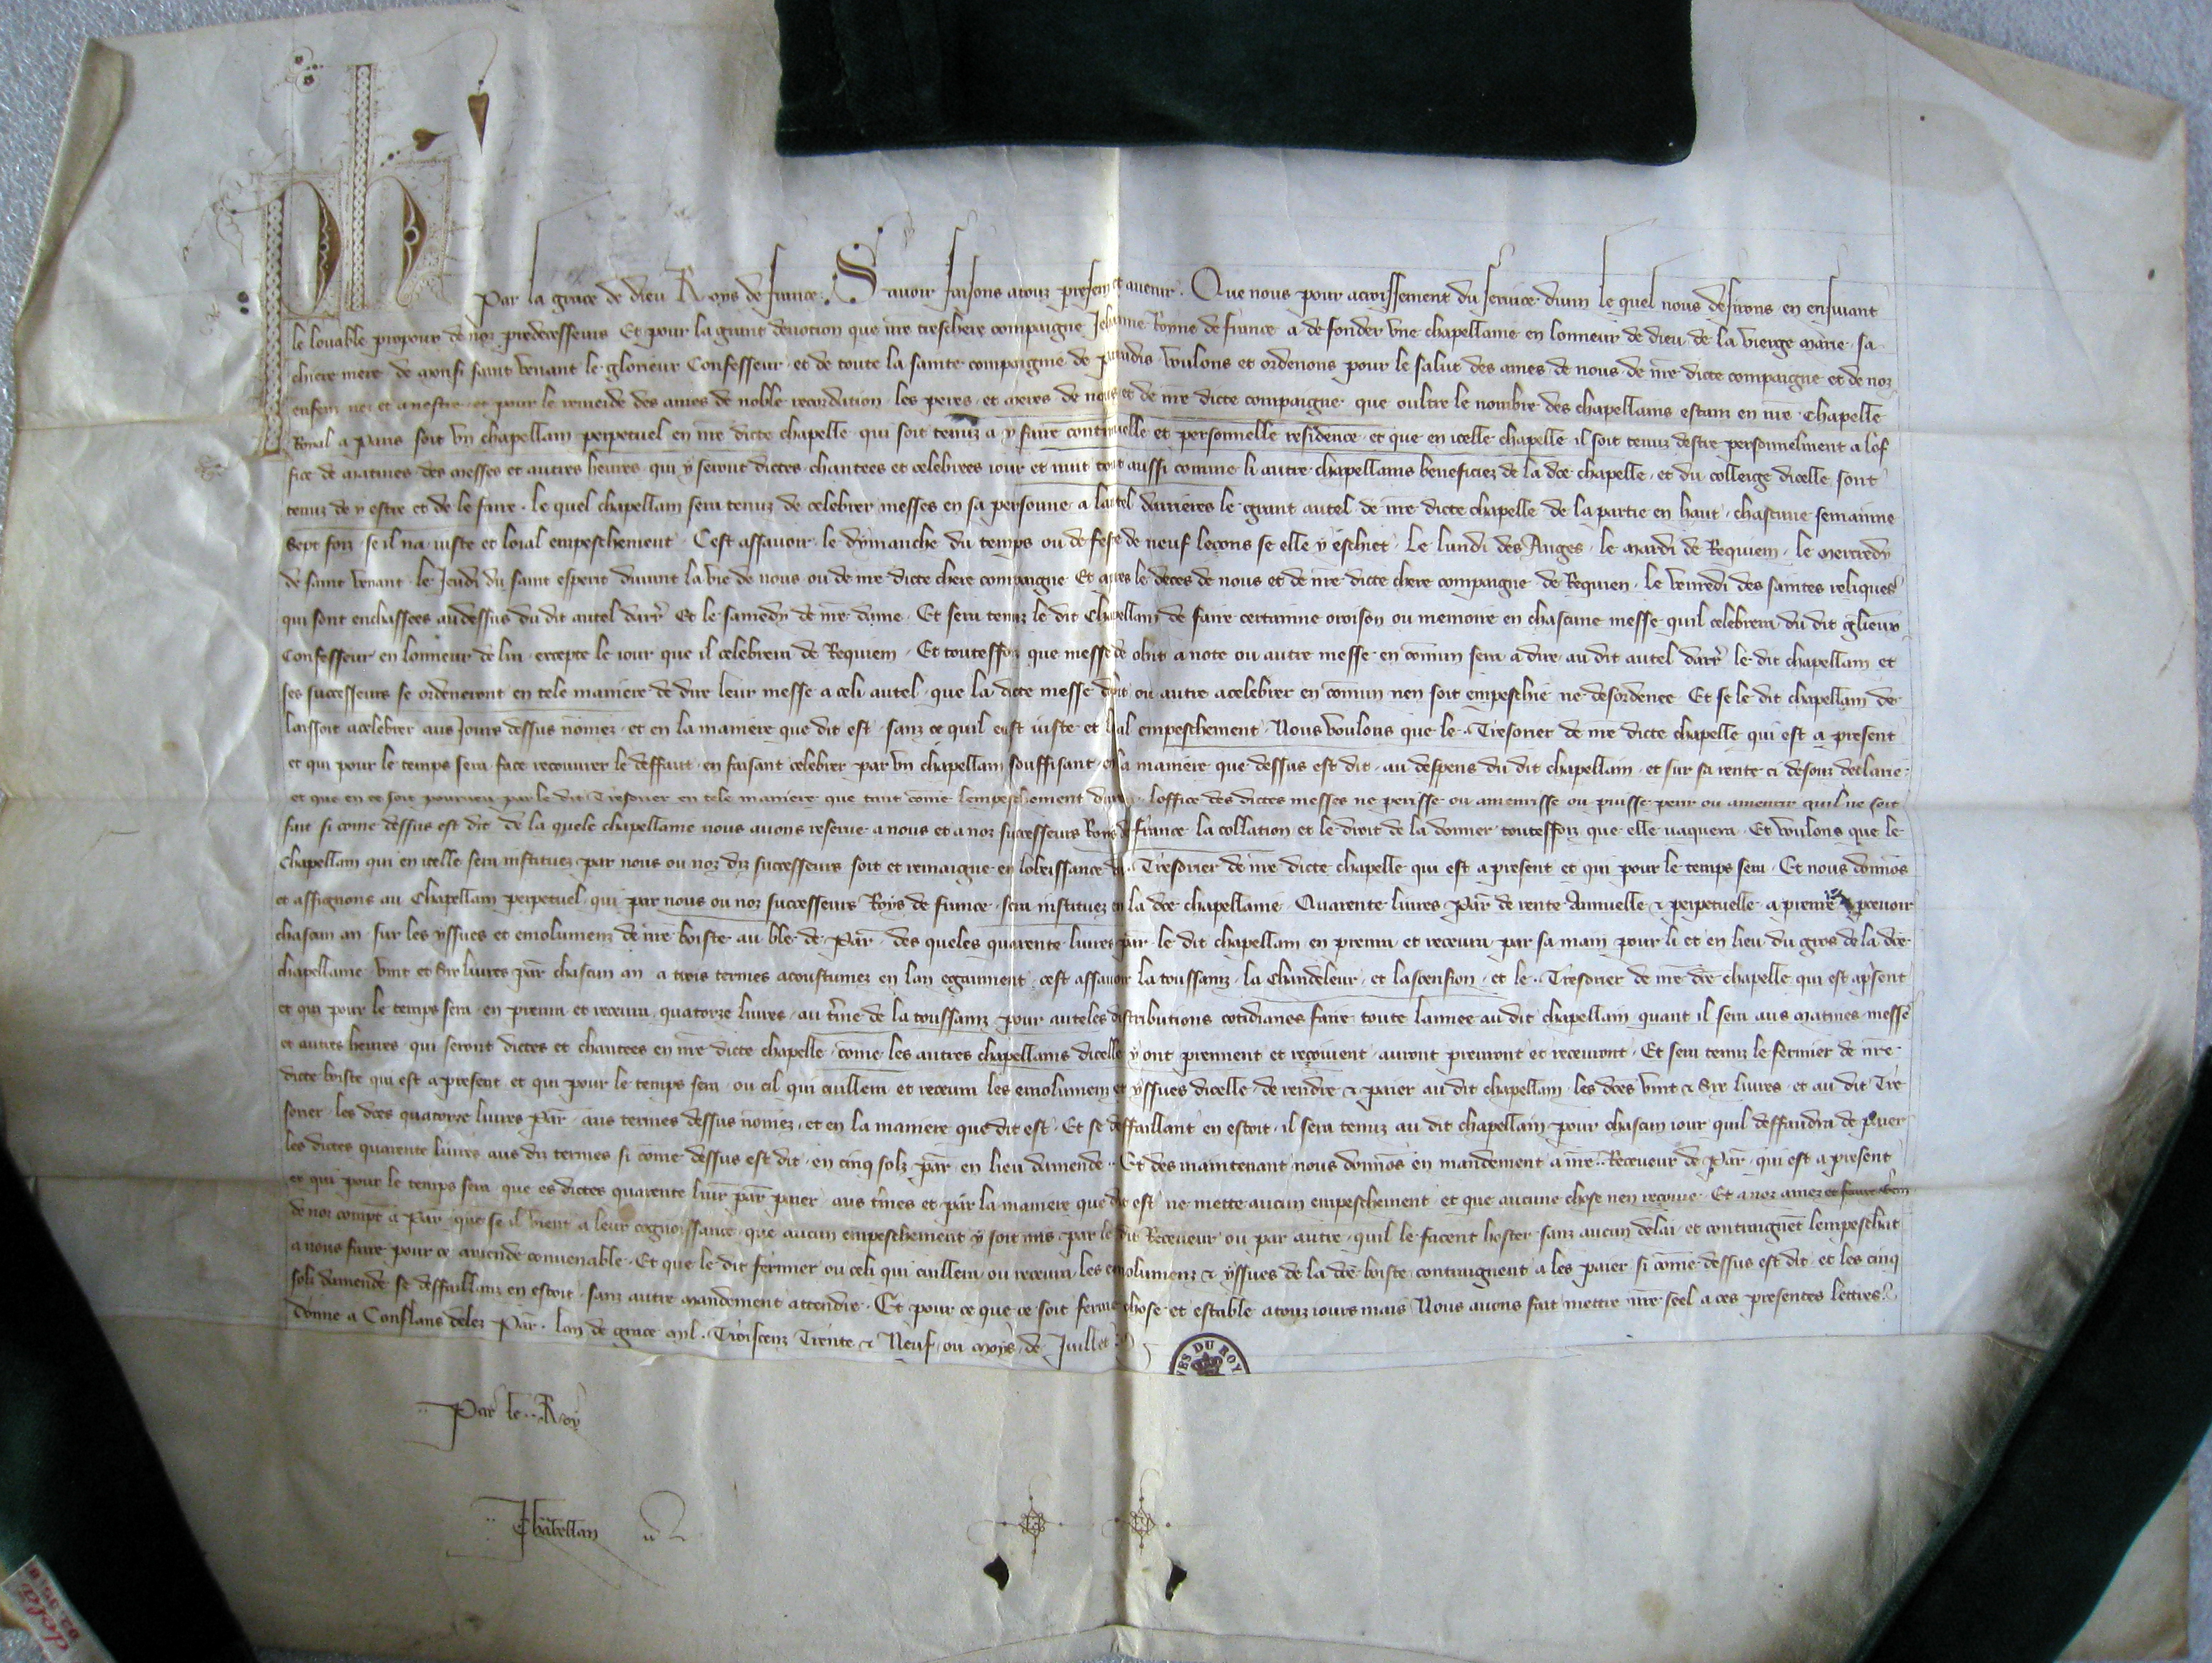 Ph
Par la grace de dieu Roys de france. Savoir faisons a touz presenz et avenir. Que nous pour acroissement du service divin le quel nous desirons en ensuivant
le louable propoux de noz predecesseurs Et pour la grant devocion que nre treschere compaigne Jehanne Royne de france a de fonder une chapellanie en lonneur de dieu de la vierge marie sa
chiere mere de monsr saint venant le glorieux Confesseur et de toute la sainte compaignie de paradis voulons et ordenons pour le salut des ames de nous de nre dicte compaigne et de noz
enfenz nez et a nestre et pour le remeide des ames de noble recordation les peres et meres de nous et de nre dicte compaigne que oultre le nombre des chapellains estanz en nre Chapelle
Royal a Paris soit un chapellain perpetuel en nre dicte chapelle qui soit tenuz a y faire continuelle et personnelle residence et que en icelle chapelle il soit tenuz destre personnelment a lof
fice de matines des messes et autres heures qui y seront dictes chantees et celebrees jour et nuit tout aussi comme li autre chapellains beneficiez de la dce chapelle et du colleige dicelle sont
tenuz de y estre et de le faire. le quel chapellain sera tenuz de celebrer messes en sa personne a lautel darrieres le grant autel de nre dicte chapelle de la partie en haut chascune semainne
sept foiz se il na juste et loial empeschement. Cest assavoir le dymanche du temps ou de feste de neuf lecons se elle y eschiet. Le lundi des Anges le mardi de Requiem le mercredy
de saint venant le Jeudi du saint esperit durant la vie de nous ou de nre dicte chere compaigne Et apres le deces de nous et de nre dicte chere compaigne de Requien. le venredi des saintes reliques
qui sont enchassees audessus du dit autel darr Et le samedy de nre dame. Et sera tenuz le dit Chapellain de faire certainne oroison ou memoire en chascune messe quil celebrera du dit glieux
Confesseur en lonneur de lui excepte le jour que il celebrera de Requiem. Et toutesfoiz que messe de obit a note ou autre messe en comun sera a dire au dit autel darr le dit chapellain et
ses successeurs se ordeneront en tele maniere de dire leur messe a celi autel que la dicte messe dobit ou autre a celebrer en comun nen soit empeschie ne desordenee Et se le dit chapellain de
laissoit a celebrer aus Jours dessus nomez et en la maniere que dit est sanz ce quil eust juste et loial empeschement. Nous voulons que le Tresorier de nre dicte chapelle qui est a present
et qui pour le temps sera face recouvrer le deffaut en faisant celebrer par un chapellain souffisant en la maniere que dessus est dit au despens du dit chapellain et sur sa rente ci desouz declarie
et que en ce soit pourveu par le dit Tresorier en tele maniere que tant come lempeschement durra loffice des dictes messes ne perisse ou amenrisse ou puisse perir ou amenrir quil ne soit
fait si come dessus est dit de la quele chapellanie nous avons reserve a nous et a noz successeurs Roys de france la collation et le droit de la donner toutesfoiz que elle vaquera. Et voulons que le
Chapellain qui en icelle sera instituez par nous ou noz diz successeurs soit et remaigne en lobeissance du Tresorier de nre dicte chapelle qui est a present et qui pour le temps sera. Et nous donnos
et assignons au Chapellain perpetuel qui par nous ou noz successeurs Roys de france sera instituez en la dce chapellanie Quarente livres par de rente Annuelle & perpetuelle a prenre & recevoir
chascun an sur les yssues et emolumenz de nre boiste au ble de Par des queles quarente livres par le dit chapellain en prenra et recevra par sa main pour li et en lieu du gros de la dce
chapellanie vint et six livres par chascun an a trois termes acoustumez en lan egaument cest assavoir la toussainz la Chandeleur et lascension et le Tresorier de nre dce chapelle qui est apsent
et qui pour le temps sera en prenra et recevra quatorze livres au tme de la toussainz pour auteles distributions cotidianes faire toute lannee au dit chapellain quant il sera aus matines messe
et autres heures qui seront dictes et chantees en nre dicte chapelle come les autres chapellains dicelle y ont prennent et recoivent auront prenront et recevront. Et sera tenuz le fermier de nre
dicte boiste qui est a present et qui pour le temps sera ou cil qui cuillera et recevra les emolumenz et yssues dicelle de rendre & paier au dit chapellain les dces vint & six livres et au dit Tre
sorier les dces quatorze livres par aus termes dessus nomez et en la maniere que dit est. Et se deffaillant en estoit il sera tenuz au dit chapellain pour chascun jour quil deffaudra de paier
les dictes quarente livres aus diz termes si come dessus est dit en cinq solz par en lieu damende. Et des maintenant nous donnos en mandement a nre Receveur de Par qui est a present
et qui pour le temps sera que es dictes quarente livr par paier aus tmes et par la maniere que dit est ne mette aucun empeschement et que aucune chose nen recoive Et a noz amez et feaulz gens
de noz compt a Par que se il vient a leur cognoissance que aucun empeschement y soit mis par le dit Receveur ou par autre quil le facent hoster sanz aucun delai et contraignet lempeschat
a nous faire pour ce amende convenable. Et que le dit fermier ou celi qui cuillera ou recevra les emolumenz & yssues de la dce boiste contraignent a les paier si come dessus est dit et les cinq
solz damende se deffaillanz en estoit sanz autre mandement attendre. Et pour ce que ce soit ferme chose et estable a touz jours mais Nous avons fait mettre nre seel a ces presentes lettres.
Donne a Conflans delez Par. lan de grace mil. Troiscenz Trente & Neuf ou moys de Juillet
ES DU ROY
Par le Roy
Chabellan